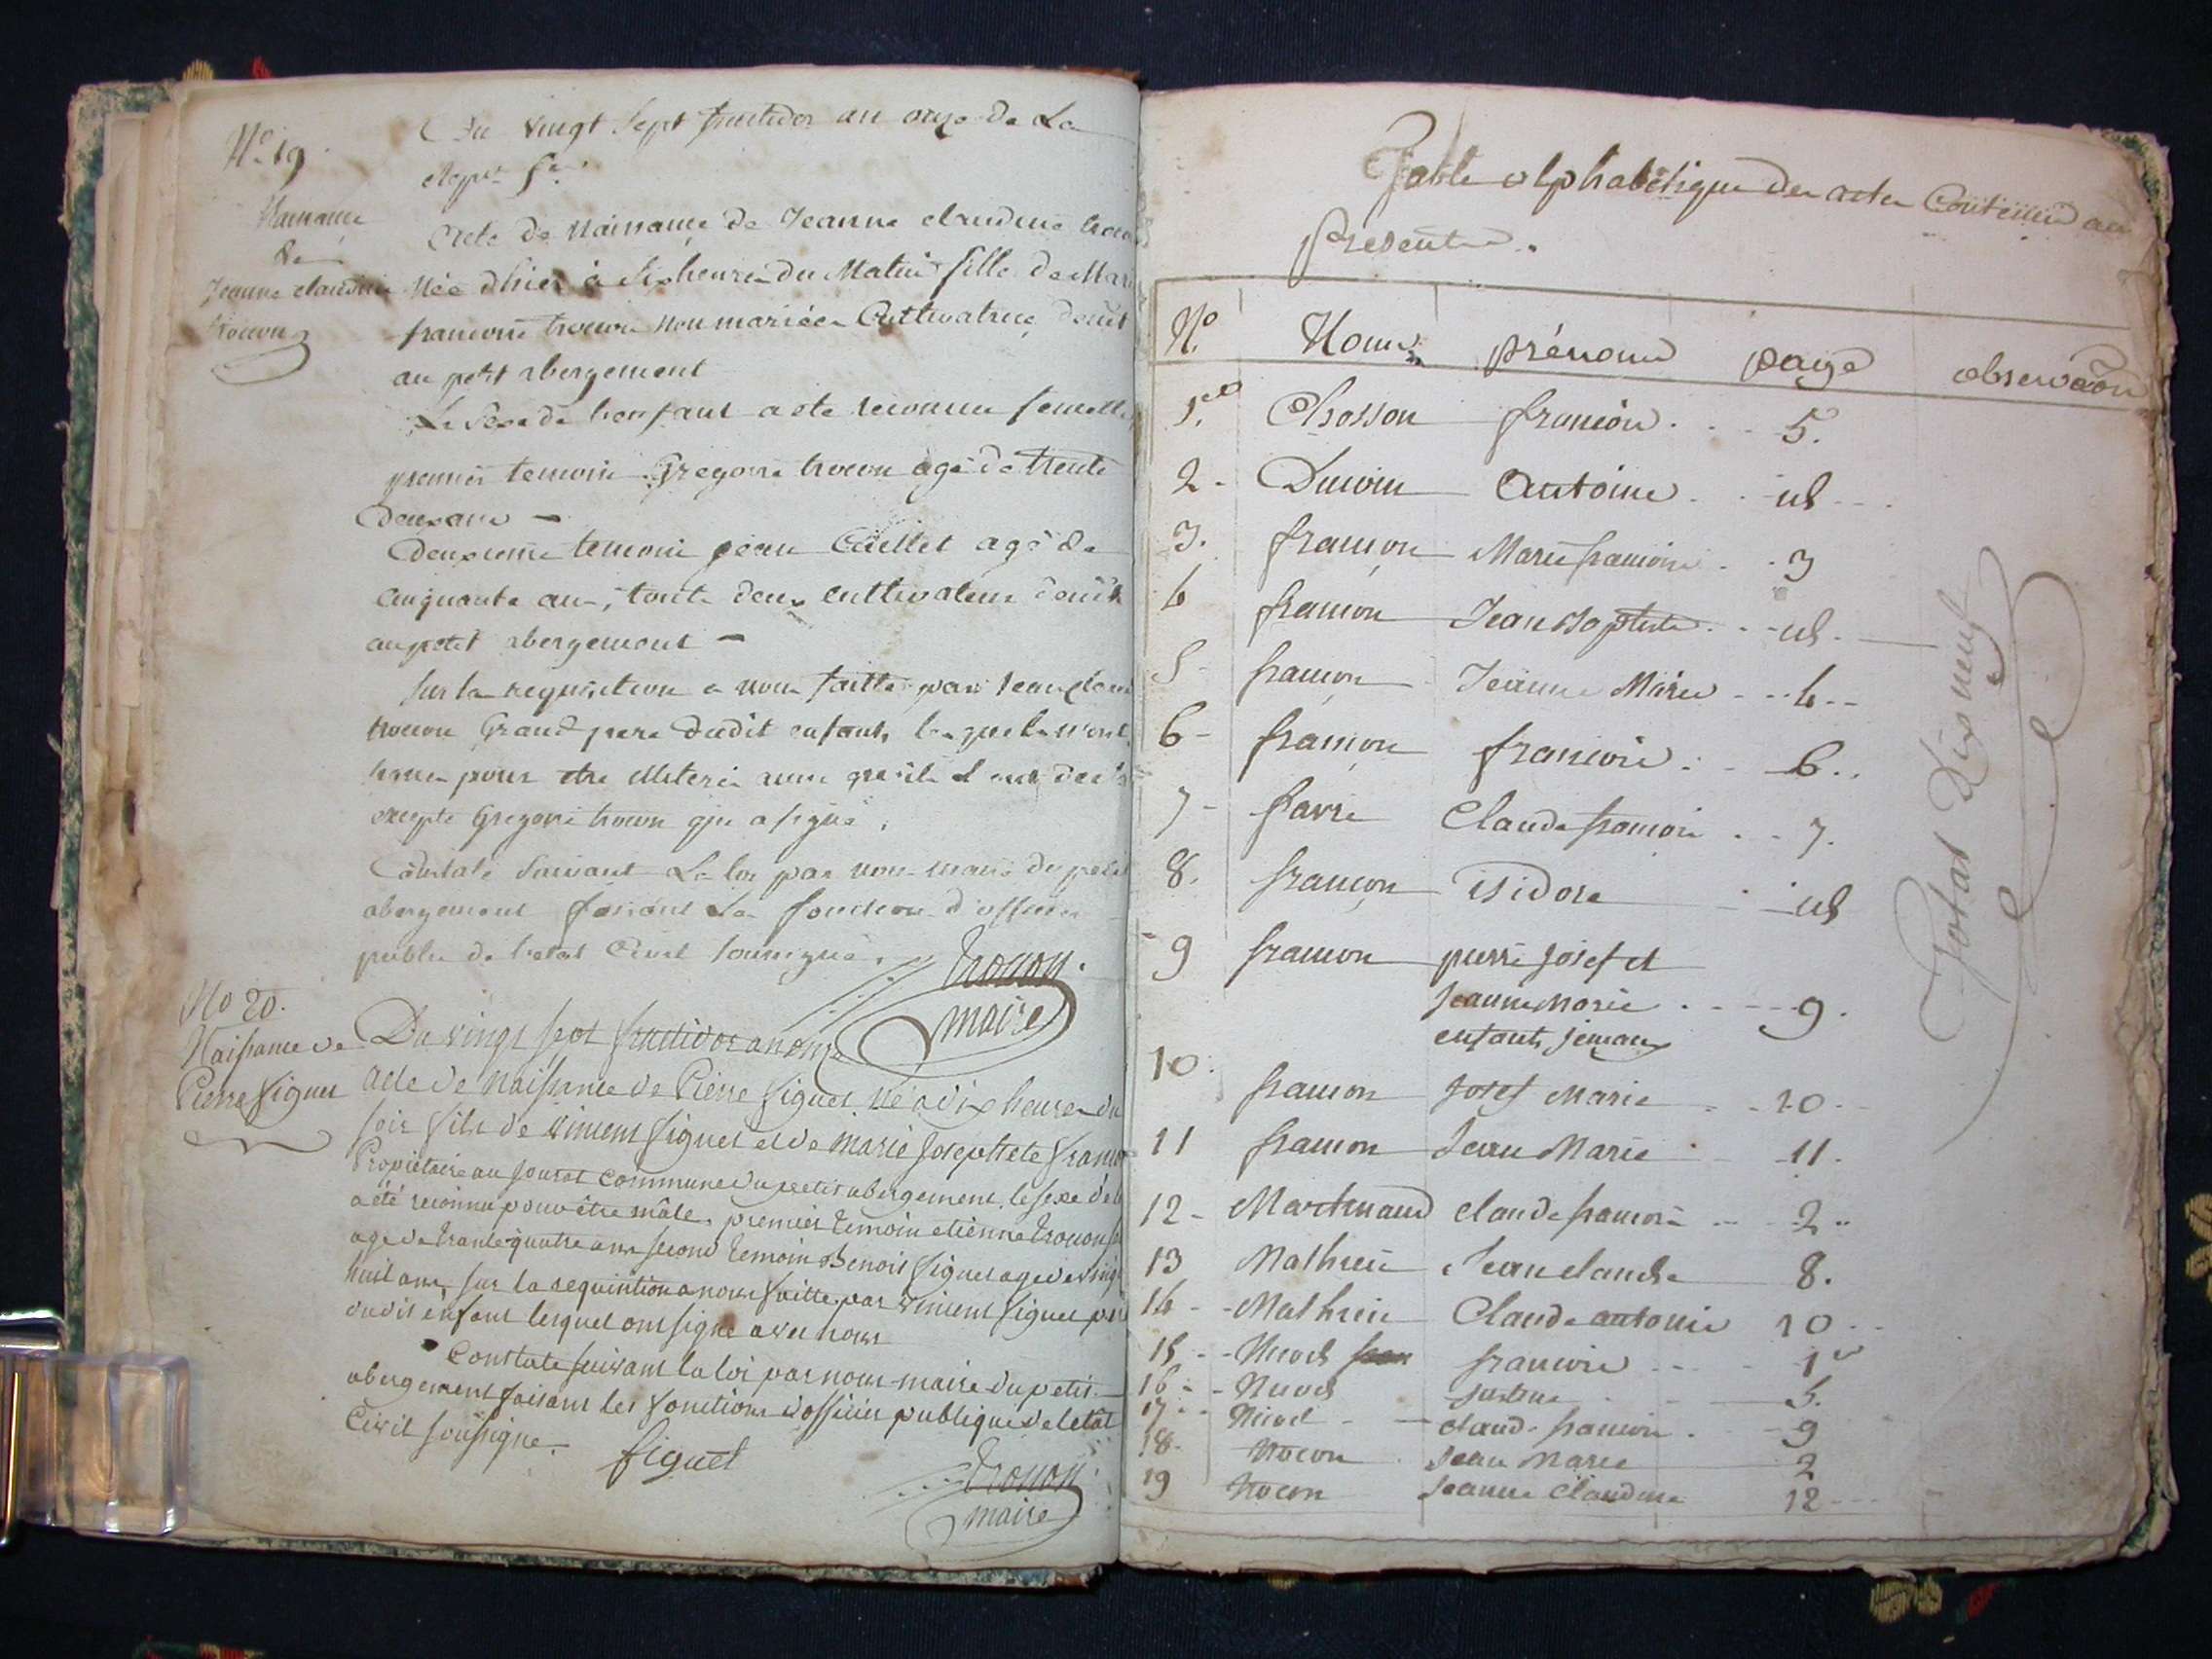 No. 19
Naissance
de
Jeanne claudine
trocon
Du vingt sept fructidor an onze de La
Acte de Naissance de Jeanne claudine troco
Née d'hier à Six heures du Matin fille de Mari
francoise trocon non mariée Cultivatrice demt
au petit abergement
Le Sexe de lenfant a ete reconnu femelle
premier temoin Gregoire trocon agé de trente
deux ans
Deuxieme temoin jean Caillet agé de
cinquante ans, touts deux cultivateurs demt
au petit abergement
Sur la requisition a nous faitte par Jean claud
trocon Grand pere dudit enfant,
excepte Gregoire trocon qui a signé.
Constaté Suivant La loi par nous maire du petit
abergement faisant La fonction d'officier
public de l'etat Civil soussigné.
trocon
maire
No 20.
Naissance de
Pierre figuet
Du vingt sept fructidor an onze
acte de naissance de Pierre figuet né a dix heures du
soir fils de vincent figuet et de marie josephete franco
Propriétaire au jouret commune du petit abergement, le sexe de
a été reconnu pour être mâle. premier temoin etienne trocon
age de trante quatre ans second temoin Benoit figuet age de vingt
huit ans, sur la requisition a nous faitte par vincent figuet per
dudit enfant lesquel ont signé avec nous
Constate suivant la loi par nous maire du petit
abergement faisant les fonctions d'officier publique de letat
Civil soussigne.
figuet
trocon
maire
Table alphabétique des actes Contenus au
présent
No Noms prénoms page observaon
1er Chosson francois 5.
2 Antoine id
3. françon Marie francoise 3
4 françon Jean Baptiste id.
5 françon Jeanne Marie 4
6 françon francois 6
7 favre Claude francois 7.
8. françon isidore id
9 françon pierre josef et
jeanne marie 9.
enfants jumeaux
10. françon josef Marie 10
11 françon Jean Marie 11.
12 Martinand claude francois 2
13 Mathieu Jean claude 8.
14 Mathieu Claude antoine 10
15 Nicod francois 1er
16 Nicod justine 5.
17 Nicod claud. francois 9
18. trocon Jean Marie 2
19 trocon Jeanne Claudine 12